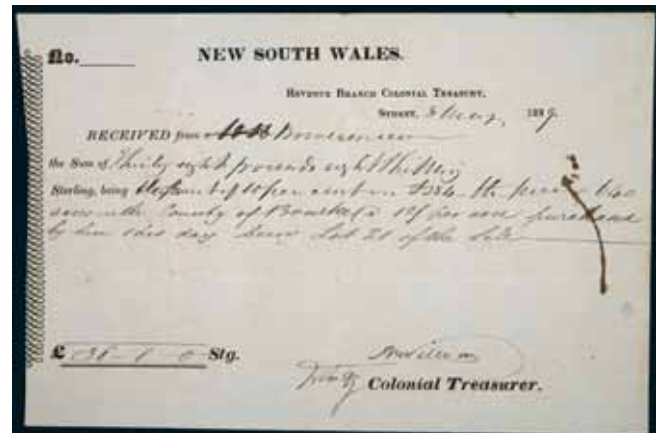 No.
NEW SOUTH WALES.
REVENUE BRANCH COLONIAL TREASURY,
SYDNEY, May, 1839.
RECEIVED from
the Sum of Thirty eight pounds eight Shillings
Sterling, being Deposit of 10 per cent on £384 the price 640
acres in the County of Bourke @ 12/ per acre purchased
by him this day being Lot 21 of the Sale
£ 38-8-0 Stg.
Colonial Treasurer.